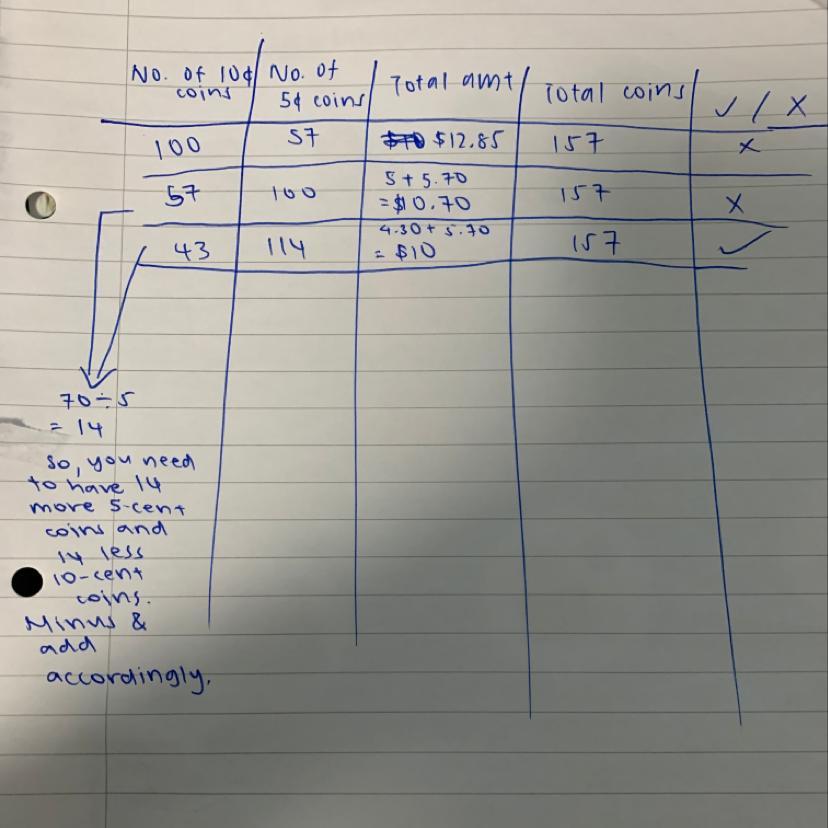 No. of 10¢ coins | No. of 5¢ coins | Total amt | Total coins | ✓ / X
100 | 57 | $12.85 | 157 | X
57 | 100 | 5 + 5.70 = $10.70 | 157 | X
43 | 114 | 4.30 + 5.70 = $10 | 157 | ✓
70 ÷ 5
= 14
So, you need
to have 14
more 5-cent
coins and
14 less
10-cent
coins.
Minus &
add
accordingly.